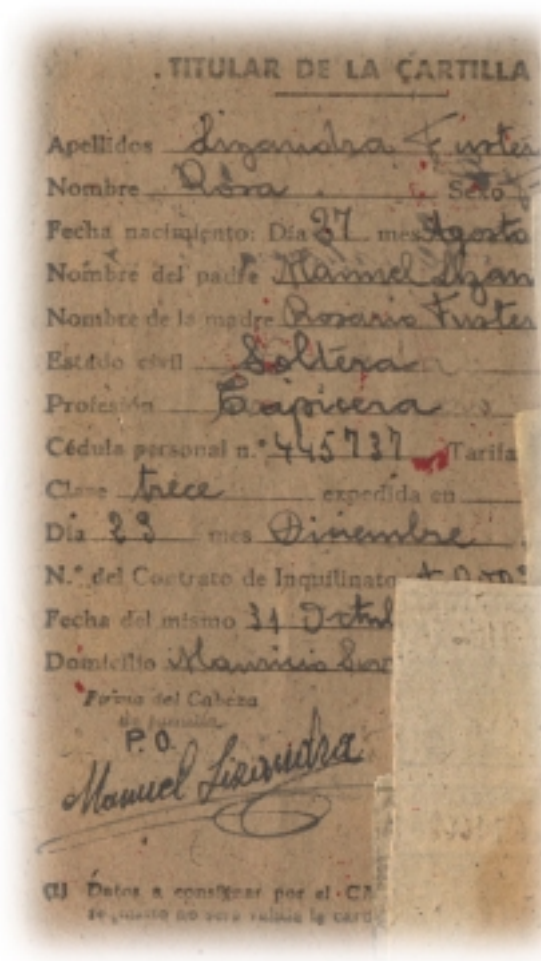 TITULAR DE LA CARTILLA
Apellidos Lizandra Fuster
Nombre Rosa Sexo
Fecha nacimiento: Día 27 mes Agosto
Nombre del padre Manuel Lizan
Nombre de la madre Rosario Fuster
Estado civil Soltera
Profesión Tapicera
Cédula personal n.° 445737 Tarifa
Clase trece expedida en
Día 23 mes Diciembre
N.° del Contrato de Inquilinato
Fecha del mismo 31 Octub
Domicilio Mauricio
Firma del Cabeza
de familia,
P. O.
Manuel Lizandra
(1) Datos a consignar por el
requisito no será válida la